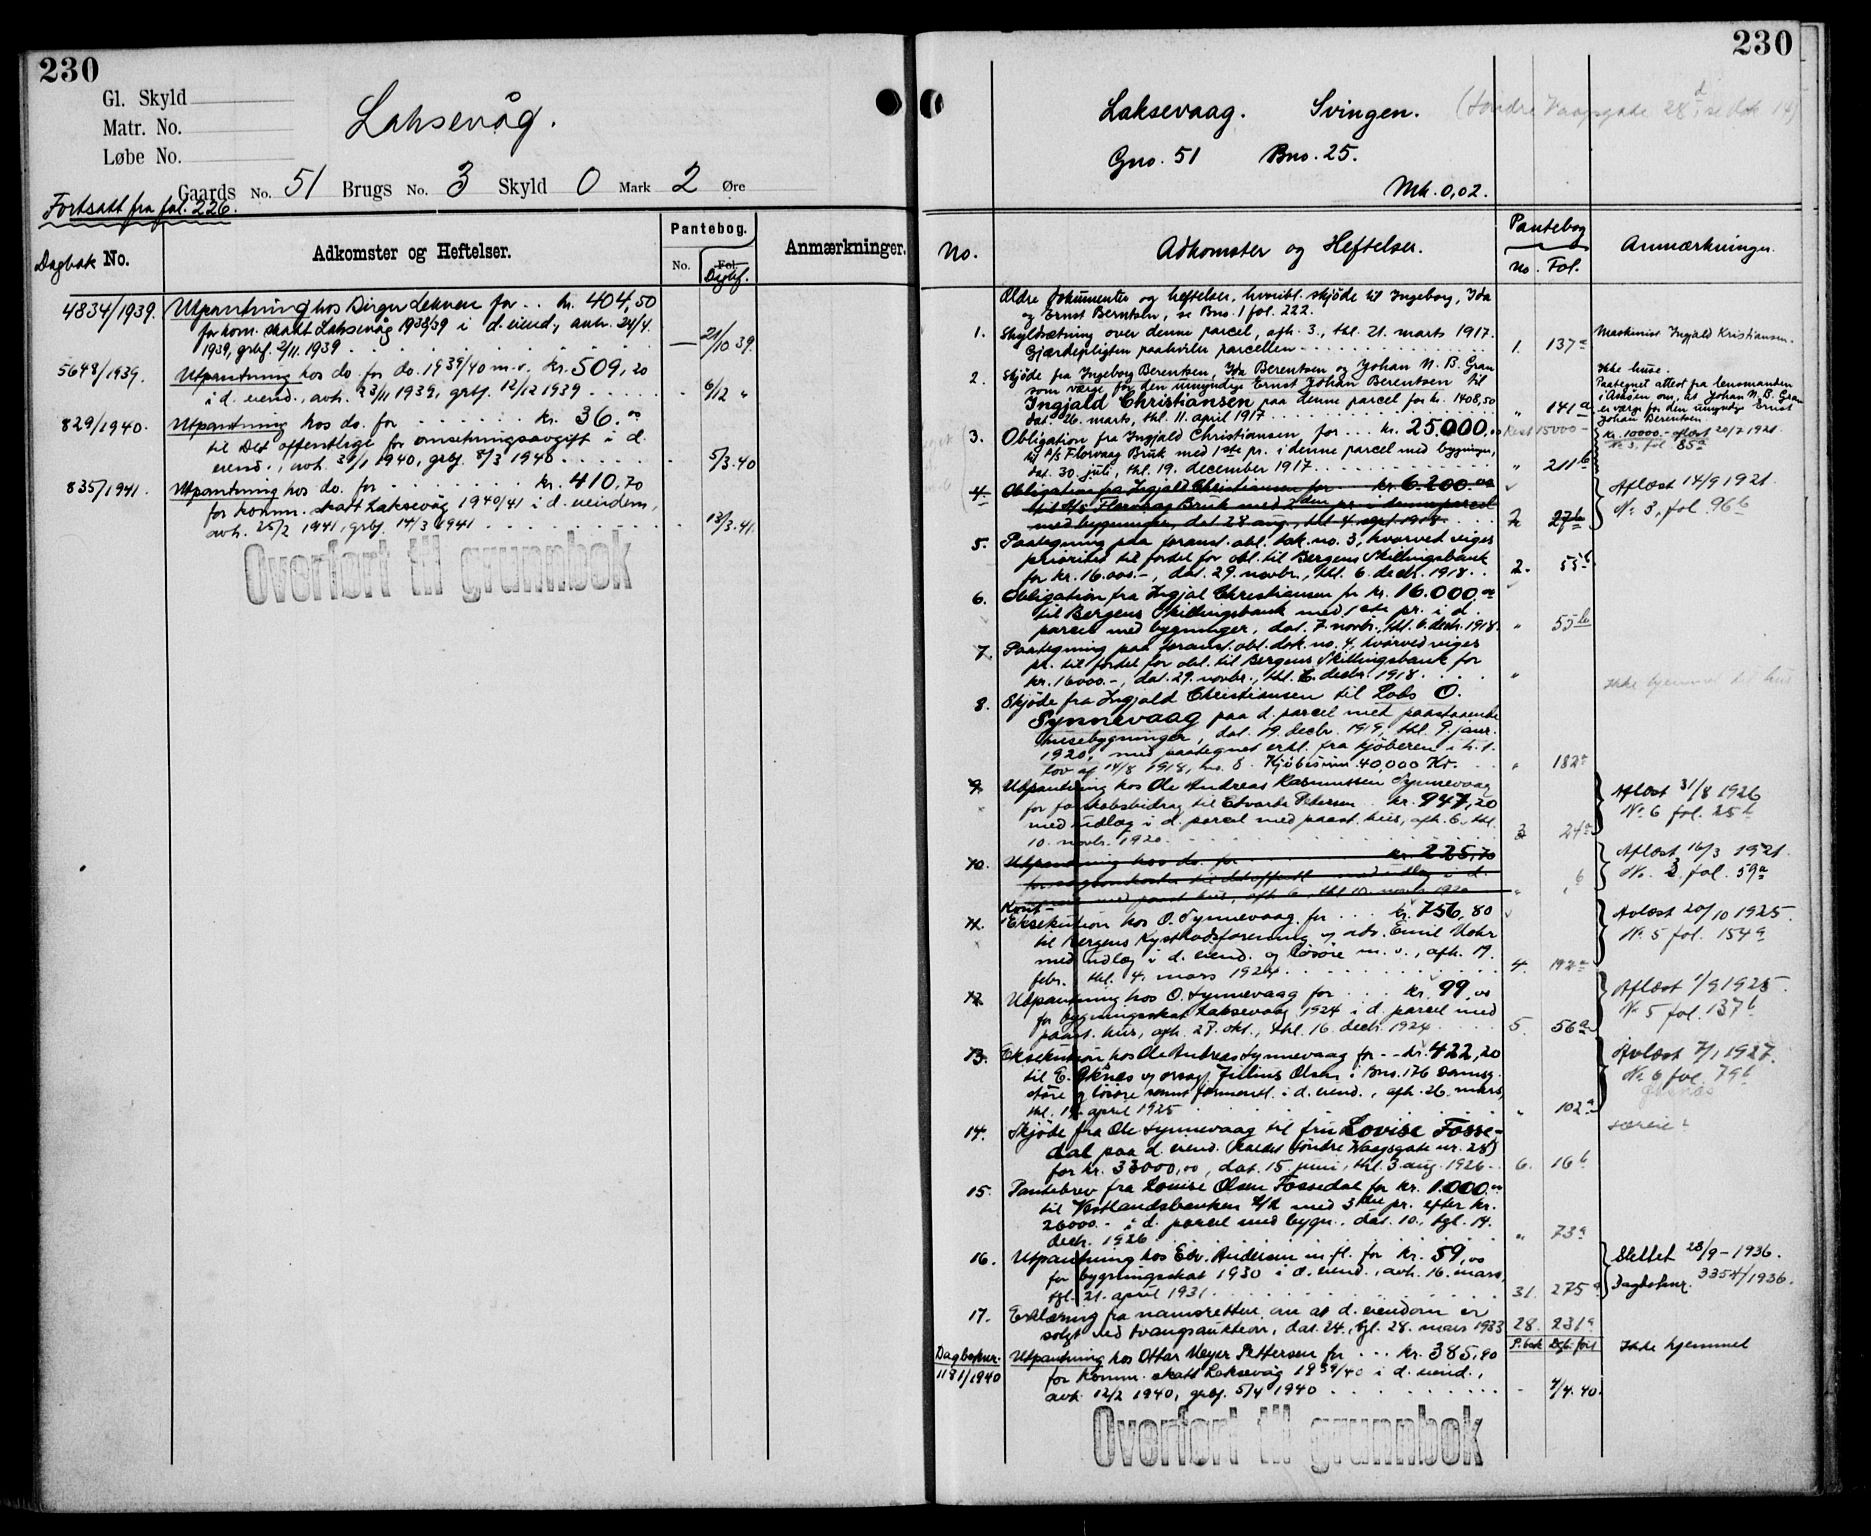 230
Gl. Skyld
Matr. No.
Løbe No.
Laksevåg.
Gaards No. 51 Brugs No. 3 Skyld 0 Mark 2 Øre
Fortsatt fra fol. 226.
Dagbok No.
Adkomster og Heftelser.
Pantebog.
No. Fol.
Dgbf.
Anmærkninger.
4834/1939. Utpantning hos Birger Lekven for .. kr. 404,50
for kom. skatt Laksevåg 1938/39 i d. eiend., avh. 24/4
1939, grbf. 2/11 1939 — 21/10 39.
5648/1939. Utpantning hos do. for do. 1939/40 m.v. kr. 509,20
i d. eiend., avh. 23/11 1939, grbf. 12/12 1939 - 6/12 "
829/1940. Utpantning hos do. for kr. 36.00
til Det offentlige for omsetningsavgift i d.
eiend., avh. 31/1 1940, grbf. 8/3 1940 - 5/3.40
835/1941. Utpantning hos do. for kr. 410,70
for komm. skatt Laksevåg 1940/41 i d. eiendom,
avh. 25/2 1941, grbf. 14/3 1941 - 13/3.41.
Overført til grunnbok
230
Laksevaag. Svingen. (Søndre Vaagsgade 28d, se dok 14)
Gno. 51 Bno. 25.
Mk. 0,02.
No.
Adkomster og Heftelser.
Pantebog
No. Fol.
Anmærkninger.
Ældre dokumenter og heftelser, hvoribl. skjøde til Ingeborg, Ida
og Ernst Berntsen, se Bno. 1 fol. 222.
1. Skyldsætning over denne parcel, afh. 3., thl. 21. marts 1917.
Gjærdepligten paahviler parcellen 1. 137a
Maskinist Ingjald Kristiansen.
2. Skjøde fra Ingeborg Berentsen, Ida Berentsen og Johan N. B. Gran
som værge for den umyndige Ernst Johan Berentsen til
Ingjald Christiansen paa denne parcel for kr. 1408,50
dat. 26. marts, thl. 11. april 1917 " 141a
Ikke huse.
Paategnet attest fra lensmanden
i Askøen om, at Johan N. B. Gran
er værge for den umyndige Ernst
Johan Berentsen.
3. Obligation fra Ingjald Christiansen for kr. 25.000,00 Rest 15000-
til A/S Florvaag Bruk med 1ste pr. i denne parcel med bygninger,
dat. 30. juli, thl. 19. december 1917 " 211b
kr. 10000.- afløst 20/7 1921.
No 3, fol 85a
4. Obligation fra Ingjald Christiansen for kr. 6.200.00
til A/S Florvaag Bruk med 2den pr. i denne parcel
med bygninger, dat 28 aug., thl 4 sept 1918. 2 27b
Afløst 14/9 1921.
No 3, fol. 96b
5. Paategning paa foranst. obl. dok. no. 3, hvorved viges
prioritet til fordel for obl. til Bergens Skillingsbank
for kr. 16.000.-, dat. 29. novbr., thl. 6. decbr. 1918. 2. 55b
6. Obligation fra Ingjal Christiansen for kr. 16.000,00
til Bergens Skillingsbank med 1ste pr. i d.
parcel med bygninger, dat. 7. novbr., thl. 6. decbr. 1918. " 55b
7. Paategning paa foranst. obl. dok. no. 4, hvorved viges
pr. til fordel for obl. til Bergens Skillingsbank for
kr. 16000.-, dat. 29. novbr., thl. 6. decbr. 1918. "
Ikke hjemmel til hus
8. Skjøde fra Ingjald Christiansen til Lods O.
Synnevaag paa d. parcel med paastaaende
husebygninger, dat. 19. decbr. 1919, thl. 9. janr.
1920, med paategnet erkl. fra kjøberen i h. t.
lov af 14/8 1918, no. 8. Kjøbesum 40,000 Kr. " 182a
9. Utpantning hos Ole Andreas Rasmussen Synnevaag
for farskabsbidrag til Edvarda Petersen kr. 947,20
med udlæg i d. parcel med paast. hus, afh. 6., thl.
10. novbr. 1920. 3 24a
Afløst 31/8 1926
No 6 fol. 25b
10. Utpantning hos do. for kr. 225,70
for sagsomkostn. til det offentl. med udlæg i d.
parcel med paast. hus, afh. 6., thl. 10. novbr. 1920 " " b
Afløst 16/3 1921.
No. 3. fol. 59a
Kont-
11. Eksekution hos O. Synnevaag for kr. 756,80
til Bergens Kysthadsforening v/ adv. Emil Mohr
med udlæg i d. eiend. og løsøre m. v., afh. 19.
febr. thl. 4. mars 1924 4. 192a
Avløst 20/10 1925.
No 5 fol. 154a
12. Utpantning hos O. Synnevaag for kr. 99,00
for bygningsskat Laksevaag 1924 i d. parcel med
paast. hus, afh. 27. okt., thl. 16. decbr. 1924 5. 56a
Afløst 1/9 1925.
No 5 fol. 137b
13. Eksekution hos Ole Andreas Synnevaag for kr. 422,20
til E. Øknæs v/ orsagf. Jillius Olsen i Bno. 176 Damsg.
store og løsøre samt formentl. i d. eiend., afh. 26. mars,
thl. 14. april 1925 " 102a
Avløst 7/1 1927.
No 6 fol. 79b
14. Skjøde fra Ole Synnevaag til fru Lovise Fosse-
dal paa d. eiend. (kaldet Søndre Vaagsgate nr. 28)
for kr. 33000,00, dat. 15. juni, thl. 3. aug. 1926 - 6. 16b
særeie
15. Pantebrev fra Louise Olsen Fossedal for kr. 1.000.00
til Vestlandsbanken A/L med 3dje pr. efter kr.
26000.- i d. parcel med bygn., dat. 10., tgl. 14.
decbr. 1926 " 73a
16. Utpantning hos Edv. Andersen m. fl. for kr. 59,00
for bygningsskat 1930 i d. eiend., avh. 16. mars,
tgl. 21. april 1931. 31. 275a
Slettet 28/9-1936.
Dagboknr. 3354/1936.
17. Erklæring fra namsretten om at d. eiendom er
solgt ved tvangsauktion, dat. 24., tgl. 28. mars 1933 28. 231a
P.bok Dgb.ført
Dagboknr.
1181/1940 Utpantning hos Ottar Meyer Pettersen for kr. 385,90
for komm. skatt Laksevåg 1939/40 i d. eiend.,
avh. 12/2 1940, grbf. 5/4 1940 - 4/4.40.
Ikke hjemmel
Overført til grunnbok